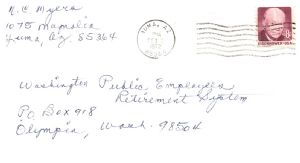 N.C. Myers
1075 Magnolia
Yuma, Az 85364
YUMA, AZ
PM
1972
EISENHOWER·USA
8c
Washington Public Employees
Retirement System
P.O. Box 918
Olympia, Wash. 98504